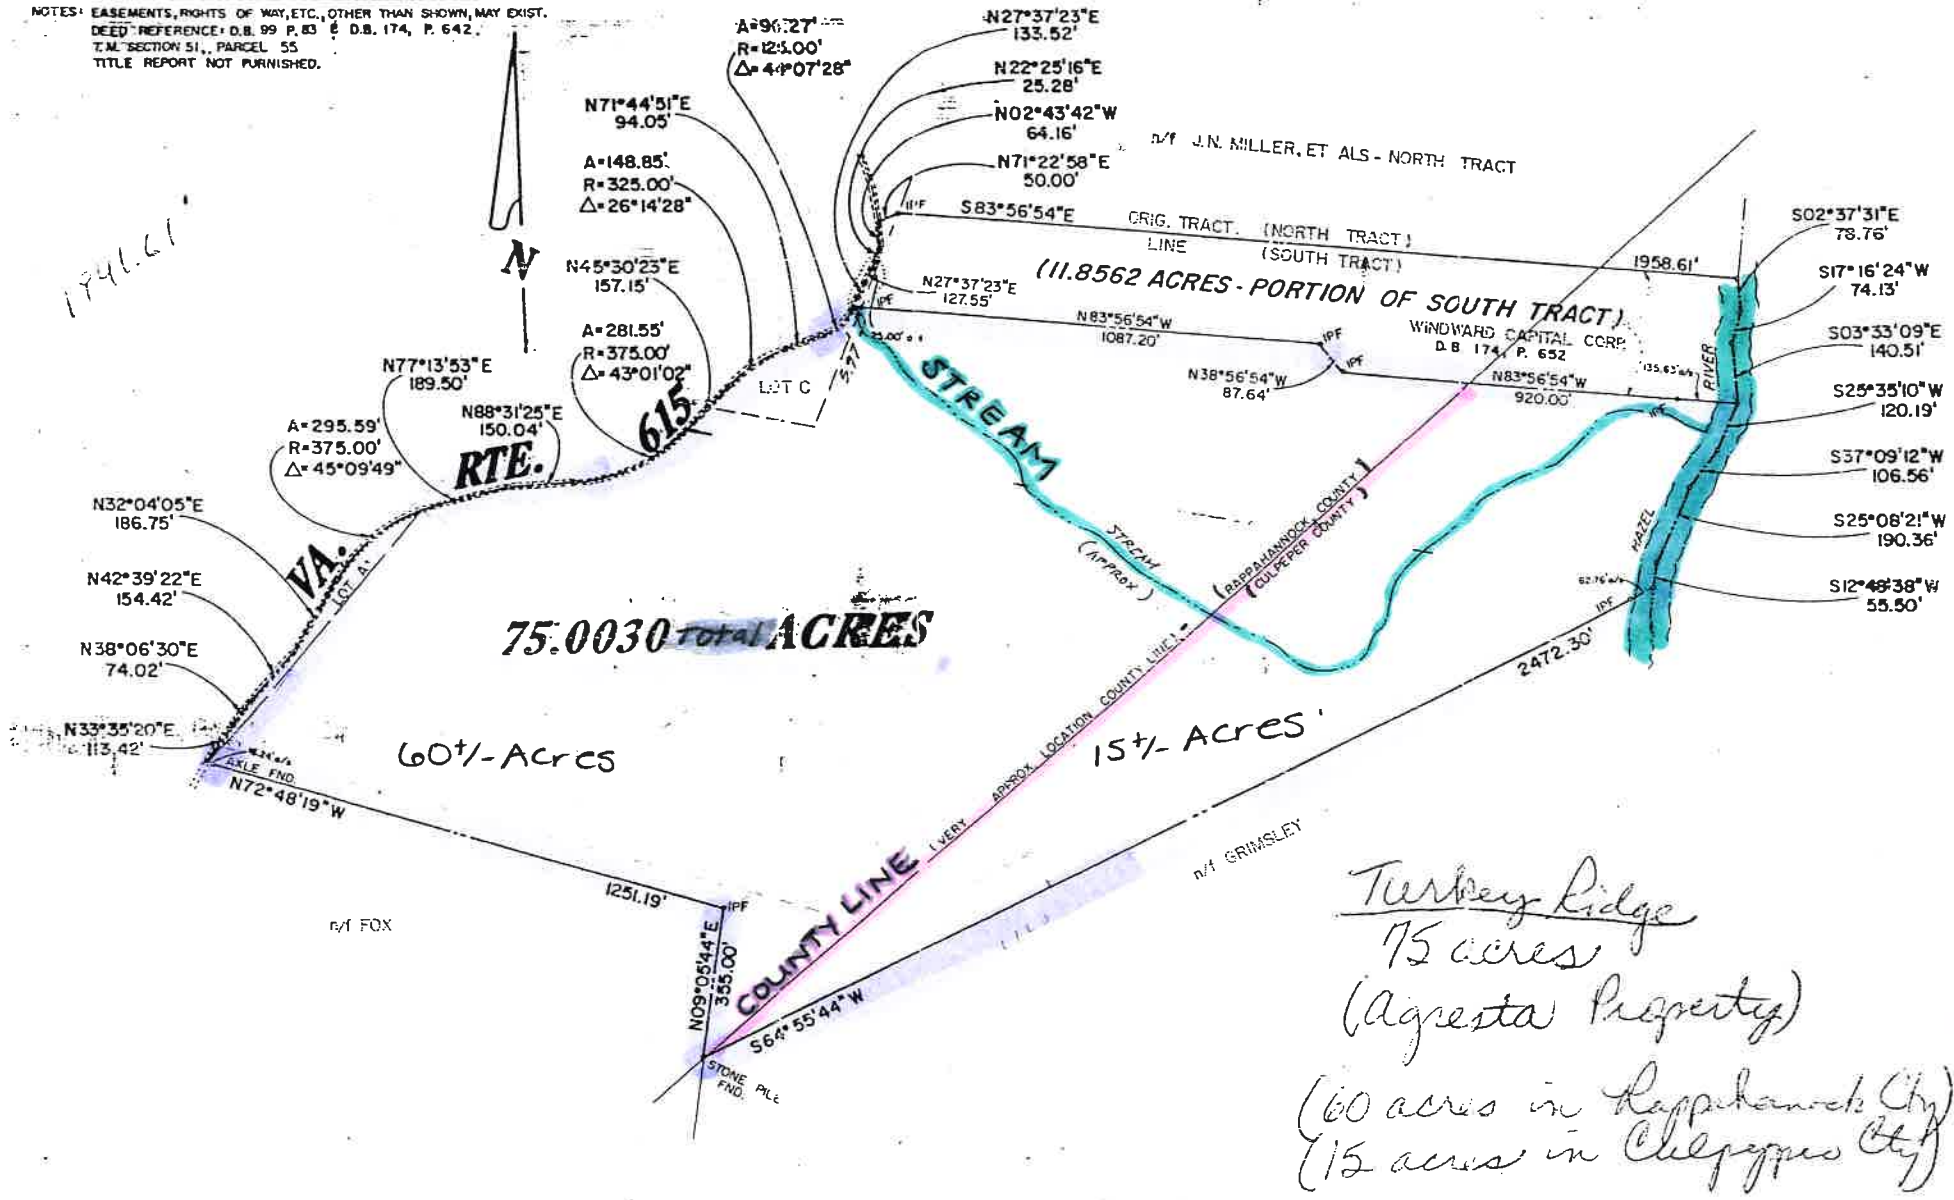 NOTES: EASEMENTS, RIGHTS OF WAY, ETC., OTHER THAN SHOWN, MAY EXIST.
DEED REFERENCE: D.B. 99 P. 83 & D.B. 174, P. 642.
T.M. SECTION 51, PARCEL 55
TITLE REPORT NOT FURNISHED.
1941.61'
N
A=96.27'
R=125.00'
Δ=44°07'28"
N27°37'23"E
133.52'
N22°25'16"E
25.28'
N02°43'42"W
64.16'
N71°22'58"E
50.00'
N71°44'51"E
94.05'
A=148.85'
R=325.00'
Δ=26°14'28"
N45°30'23"E
157.15'
A=281.55'
R=375.00'
Δ=43°01'02"
N77°13'53"E
189.50'
N88°31'25"E
150.04'
A=295.59'
R=375.00'
Δ=45°09'49"
N32°04'05"E
186.75'
N42°39'22"E
154.42'
N38°06'30"E
74.02'
N33°35'20"E
113.42'
VA. RTE. 615
LOT A
LOT C
n/f J.N. MILLER, ET ALS - NORTH TRACT
IPF
S83°56'54"E
ORIG. TRACT. (NORTH TRACT)
LINE (SOUTH TRACT)
1958.61'
(11.8562 ACRES - PORTION OF SOUTH TRACT)
WINDWARD CAPITAL CORP.
D.B. 174, P. 652
N27°37'23"E
127.55'
IPF
25.00' o/s
N83°56'54"W
1087.20'
IPF
IPF
N38°56'54"W
87.64'
N83°56'54"W
920.00'
135.63' o/s
IPF
RIVER
HAZEL
S02°37'31"E
78.76'
S17°16'24"W
74.13'
S03°33'09"E
140.51'
S25°35'10"W
120.19'
S37°09'12"W
106.56'
S25°08'21"W
190.36'
S12°48'38"W
55.50'
62.76' o/s
IPF
STREAM
STREAM
(APPROX)
(RAPPAHANNOCK COUNTY)
(CULPEPER COUNTY)
75.0030 Total ACRES
60+/- Acres
15+/- Acres
COUNTY LINE
(VERY APPROX. LOCATION COUNTY LINE)
2472.30'
S64°55'44"W
n/f GRIMSLEY
AXLE FND.
N72°48'19"W
1251.19'
IPF
n/f FOX
N09°05'44"E
355.00'
STONE PILE
FND.
Turkey Ridge
75 acres
(Agresta Property)
(60 acres in Rappahannock Cty)
(15 acres in Culpeper Cty)